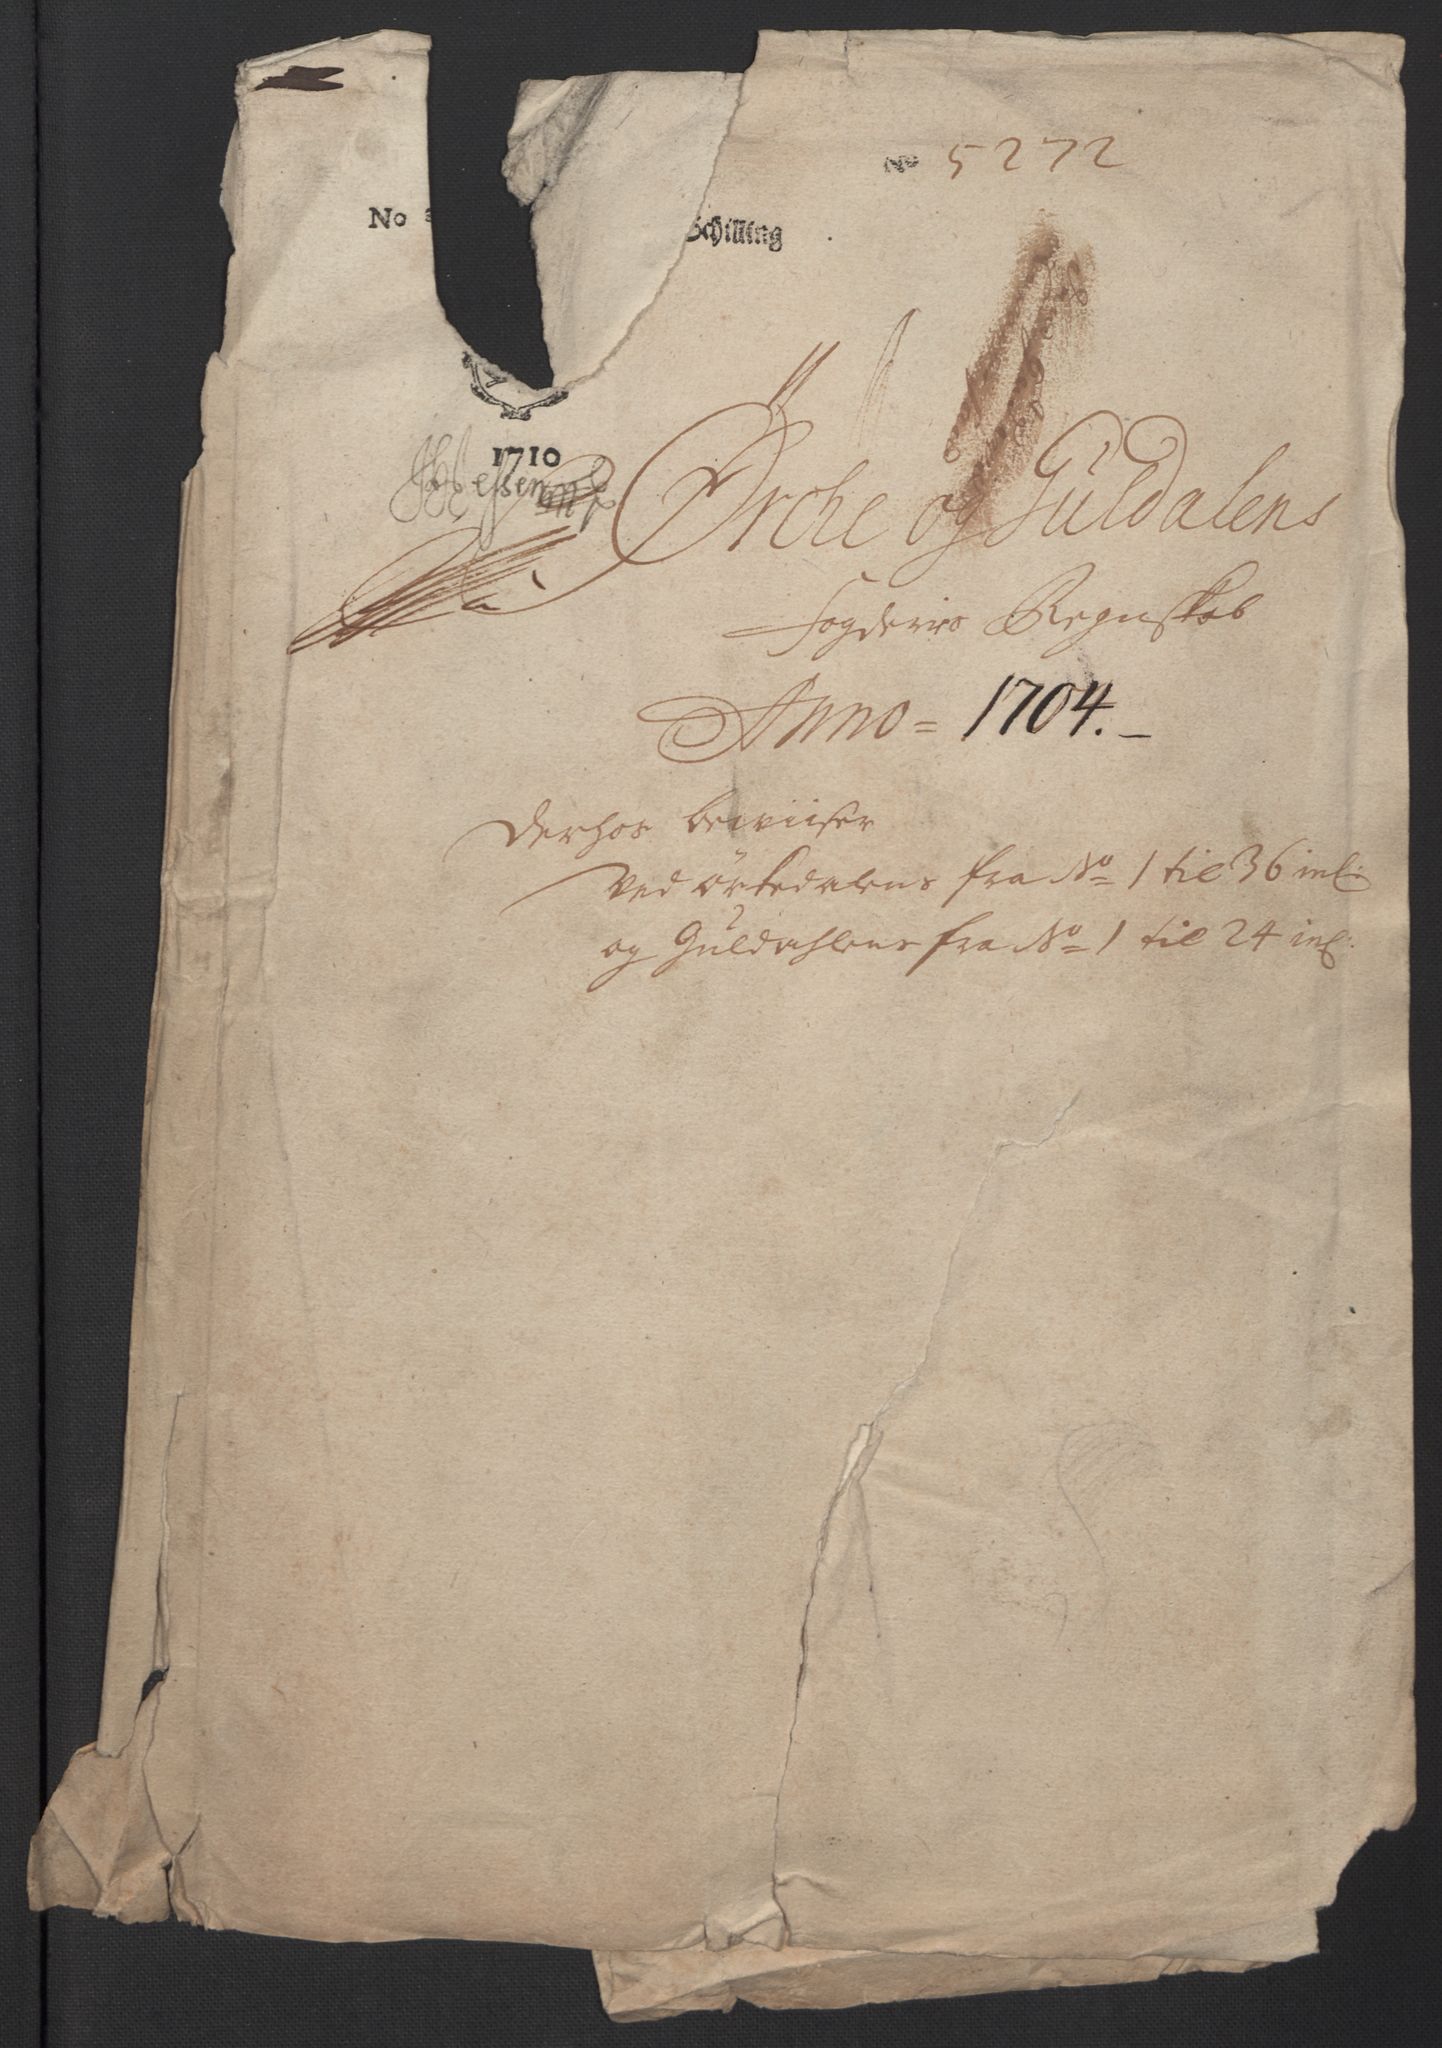 No 5272
No
Schilling
1710
Ørche og Güldalens
Fogderies Regnskab
Anno = 1704.
Derhos beviiser
Ved örkedalens fra No 1 til 36 incl:
og Güldahlens fra No 1 til 24 incl: